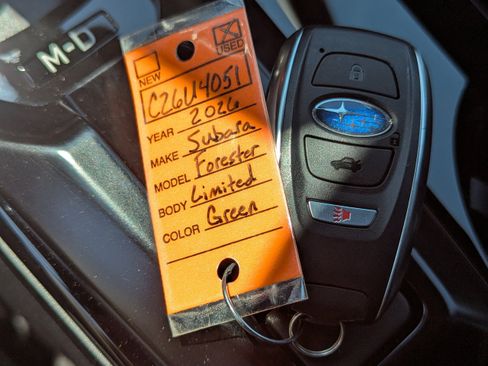 M-D
NEW
USED
C26U4051
YEAR 2026
MAKE Subaru
MODEL Forester
BODY Limited
COLOR Green